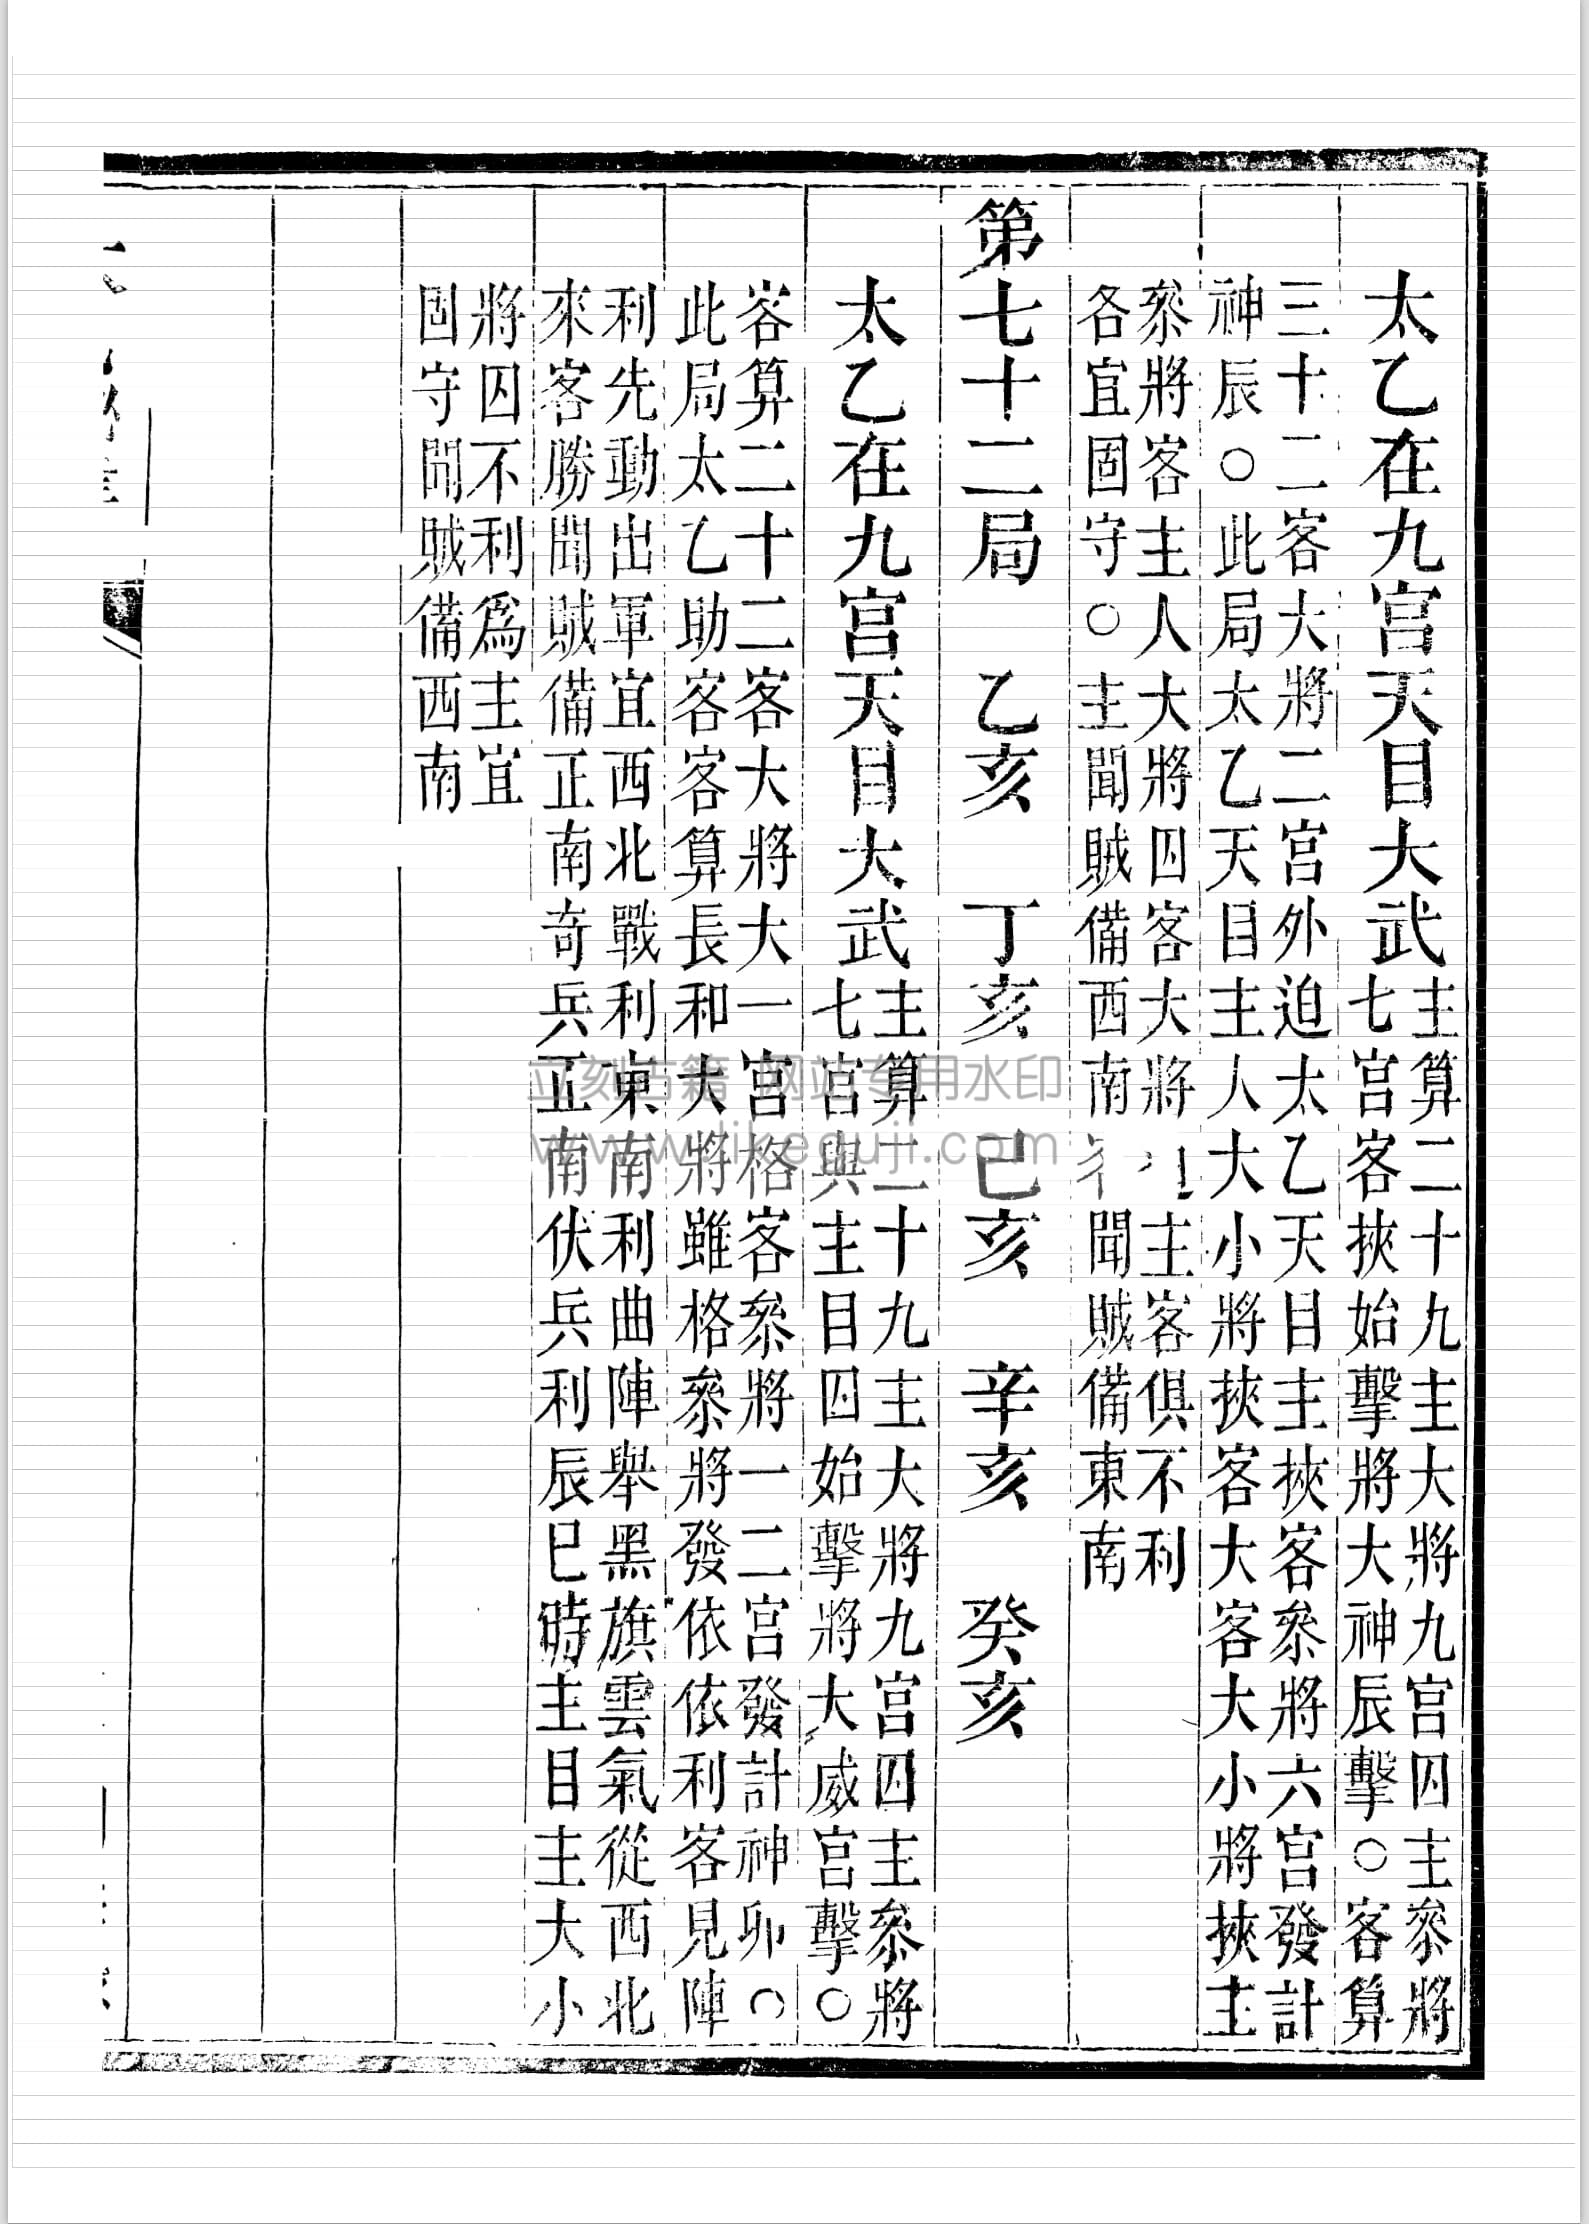 太乙在九宮天目大武
主算二十九主大將九宮囚主參將
七宮客挾始擊將大神辰擊○客算
三十二客大將二宮外迫太乙天目主挾客參將六宮發計
神辰○此局太乙天目主人大小將挾客大客大小將挾主
參將客主人大將囚客大將主客俱不利
各宜固守○主聞賊備西南聞賊備東南
第七十二局 乙亥 丁亥 己亥 辛亥 癸亥
太乙在九宮天目大武
主算二十九主大將九宮囚主參將
七宮與主目囚始擊將大威宮擊○
客算二十二客大將大一宮格客參將一二宮發計神卯○
此局太乙助客客算長和大將雖格參將發依依利客見陣
利先動出軍宜西北戰利東南利曲陣舉黑旗雲氣從西北
來客勝聞賊備正南奇兵正南伏兵利辰巳時主目主大小
將囚不利爲主宜
固守聞賊備西南
立刻古籍 网站专用水印
www.likeguji.com